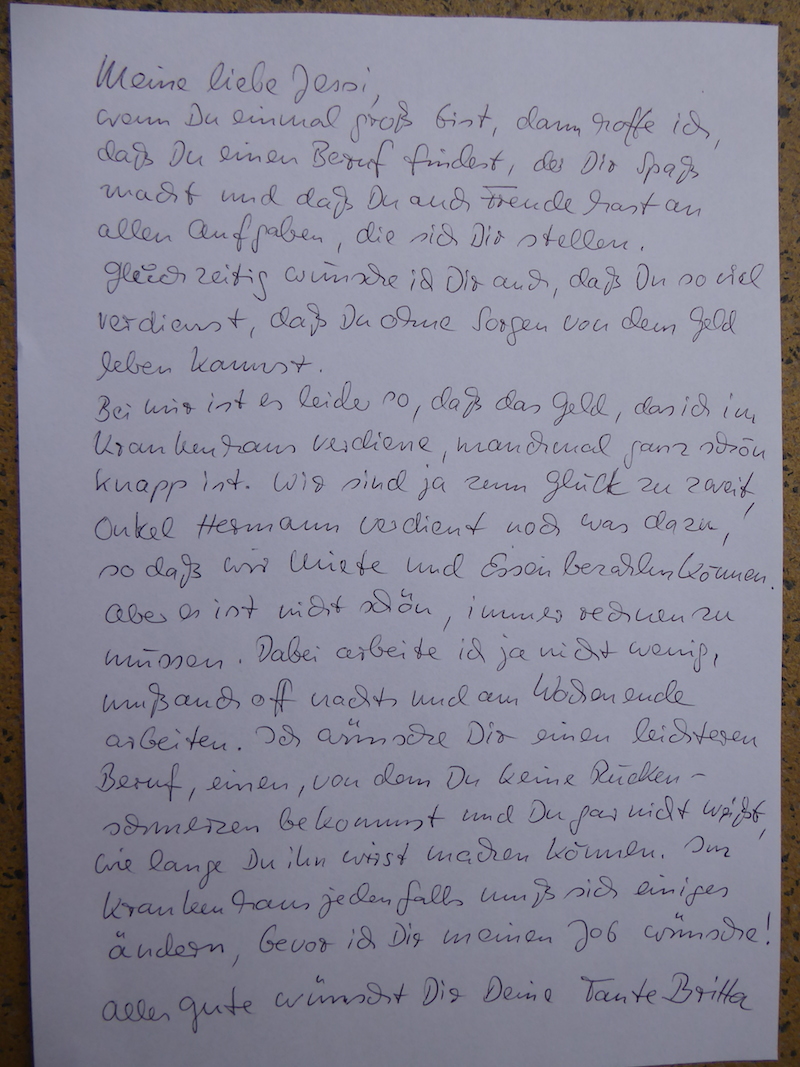 Meine liebe Jessi,
wenn Du einmal groß bist, dann hoffe ich,
daß Du einen Beruf findest, der Dir Spaß
macht und daß Du auch Freude hast an
allen Aufgaben, die sich Dir stellen.
Gleichzeitig wünsche ich Dir auch, daß Du so viel
verdienst, daß Du ohne Sorgen von dem Geld
leben kannst.
Bei mir ist es leider so, daß das Geld, das ich im
Krankenhaus verdiene, manchmal ganz schön
knapp ist. Wir sind ja zum Glück zu zweit,
Onkel Hermann verdient noch was dazu,
so daß wir Miete und Essen bezahlen können.
Aber es ist nicht schön, immer rechnen zu
müssen. Dabei arbeite ich ja nicht wenig,
muß auch oft nachts und am Wochenende
arbeiten. Ich wünsche Dir einen leichteren
Beruf, einen, von dem Du keine Rücken-
schmerzen bekommst und Du gar nicht weißt,
wie lange Du ihn wirst machen können. Im
Krankenhaus jedenfalls muß sich einiges
ändern, bevor ich Dir meinen Job wünsche!
Alles Gute wünscht Dir Deine Tante Britta